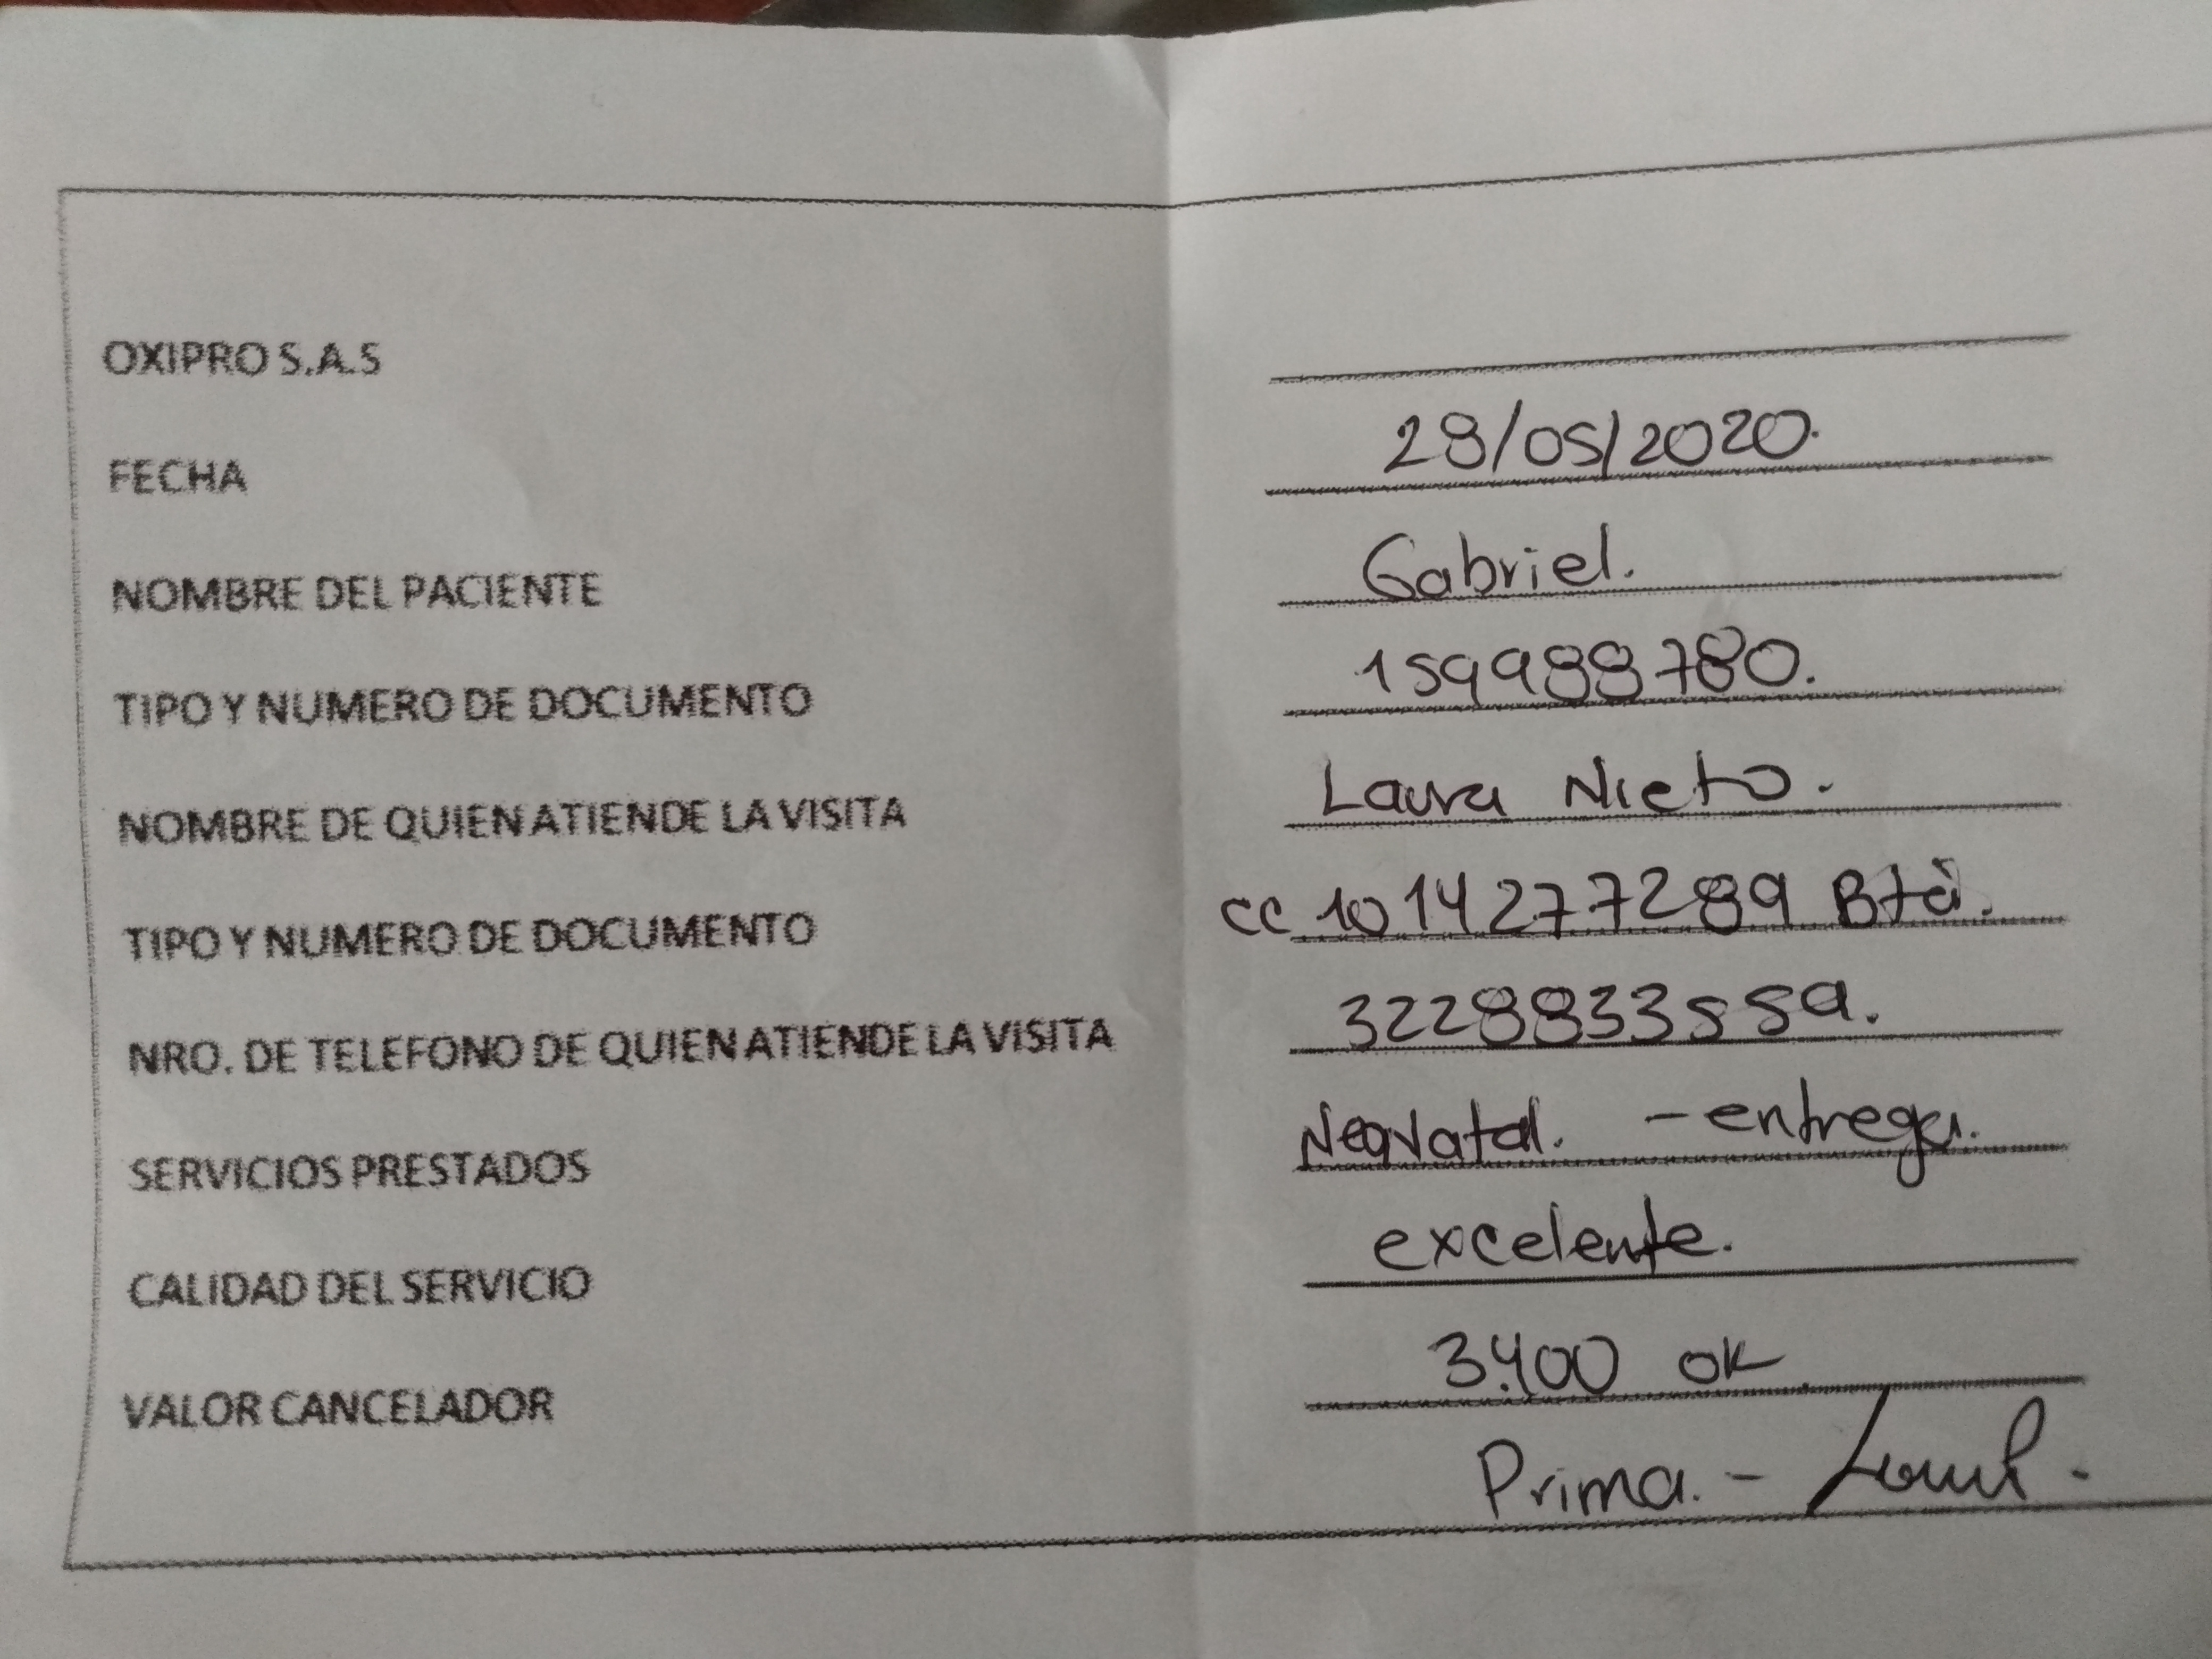 OXIPRO S.A.S
FECHA 28/05/2020.
NOMBRE DEL PACIENTE Gabriel.
TIPO Y NUMERO DE DOCUMENTO 159988780.
NOMBRE DE QUIEN ATIENDE LA VISITA Laura Nieto.
TIPO Y NUMERO DE DOCUMENTO CC 1014277289 Btá.
NRO. DE TELEFONO DE QUIEN ATIENDE LA VISITA 3228833559.
SERVICIOS PRESTADOS Neonatal. - entrega.
CALIDAD DEL SERVICIO excelente.
VALOR CANCELADOR 3.400 OK
Prima. -